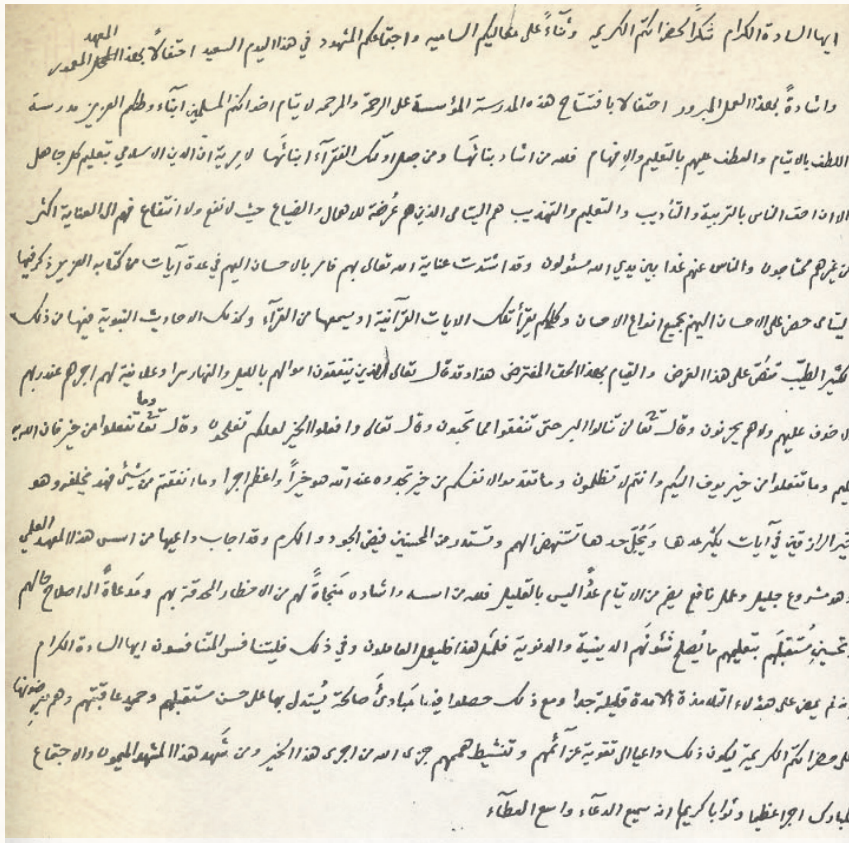 ايها السادة الكرام شكراً لحضراتكم الكريمه وثناءً على معاليكم الساميه واجتماعكم المشهود في هذا اليوم السعيد احتفالاً بهذا المعهد
واشادةً بهذا العمل المبرور احتفالا بافتتاح هذه المدرسة المؤسسة على الرحمة والمرحمه لايتام اخوانكم المسلمين ابناء وطنكم العزيز مدرسة
اللطف بالايتام والعطف عليهم بالتعليم والافهام فلله من اشاد بنائها ومن جعل اولئك الفقرآء ابنائها لا مرية ان الدين الاسلامي بتعليم كل جاهل
الا ان احق الناس بالتربية والتأديب والتعليم والتهذيب هم اليتامى الذين هم عُرضة للاهمال والضياع حيث لا نفع ولا انتفاع فهم الى العناية اكثر
من غيرهم محتاجون والناس عنهم غدا بين يدي الله مسئولون وقد اشتدت عناية الله تعالى بهم فامر بالاحسان اليهم في عدة آيات من كتابه العزيز ذكر فيها
اليتامى حض على الاحسان اليهم بجميع انواع الاحسان وكلكم يقرأ تلك الايات القرآنية او يسمعها من القرآء وكذلك الاحاديث النبوية فيها من ذلك
الكثير الطيّب تنص على هذا الغرض والقيام بهذا الحق المفترض هذا وقد قال تعالى الذين ينفقون اموالهم بالليل والنهار سرا وعلانية لهم اجرهم عند ربهم
لا خوف عليهم ولا هم يحزنون وقال تعا لن تنالوا البر حتى تنفقوا مما تحبون وقال تعالى وافعلوا الخير لعلكم تفلحون وقال تعا وما تفعلوا من خير فان الله به
عليم وما تنفقوا من خير يوف اليكم وانتم لا تظلمون وما تقدموا لانفسكم من خير تجدوه عند الله هو خيراً واعظم اجرا وما انفقتم من شيئ فهو يخلفه وهو
خير الرازقين في آيات يكثر عدها ويَجُلّ حدها تستنهض الهمم وتستدر من المحسنين فيض الجود والكرم وقد اجاب داعيها من اسس هذا المعهد العلمي
وهو مشروع جليل وعمل نافع يضم من الايتام عدًّا ليس بالقليل فلله من اسسه واشاده منجاةً لهم من الاخطار المحدقة بهم ومَدعاةً الى اصلاح حالهم
وتحسين مُستقبلهم بتعليمهم ما يُصلح شئونهم الدينية والدنيوية فلمثل هذا فليعمل العاملون وفي ذلك فليتنافس المتنافسون ايها السادة الكرام
لم يمض على هؤلاء التلامذة الا مدة قليلة جدا ومع ذلك حصلوا فيها مَبَادئَ صالحة يُستدل بها على حسن مستقبلهم وحميد عاقبتهم وهم
على حضراتكم الكريمة ليكون ذلك داعيا الى تقوية عزائمهم وتنشيط هممهم جزى الله من اجرى هذا الخير ومن شَهِد هذا المشهد الميمون والاجتماع
المبارك اجرا عظيما وثوابا كريما انه سميع الدعآء واسع العطآء